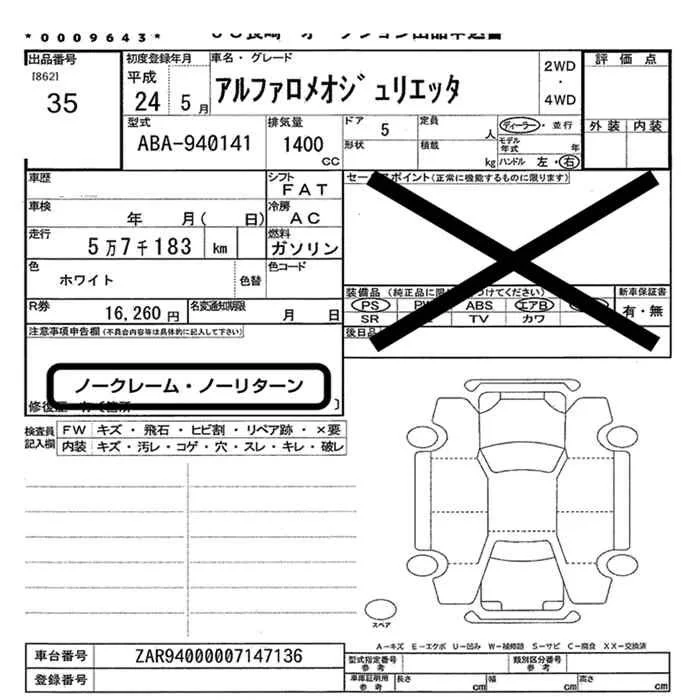 *0009643*
出品番号
[862]
35
初度登録年月
平成
24 5月
車名・グレード
アルファロメオジュリエッタ
2WD
・
4WD
評価点
外装 内装
型式
ABA-940141
排気量
1400
CC
ドア 5
形状
定員 人
積載 kg
ディーラー・並行
モデル年式 年
ハンドル 左・右
車歴
シフト
FAT
セー スポイント(正常に機能するものに限ります)
車検
年 月( 日)
冷房
AC
走行
5万7千183 km
燃料
ガソリン
色
ホワイト
色替
色コード
装備品 (純正品に限 つけてください)
PS P ABS エアB
SR TV カワ
新車保証書
有・無
R券
16,260円
名変通知期限
月 日
後日品
注意事項申告欄(不具合内容等は具体的に記入して下さい)
ノークレーム・ノーリターン
検査員記入欄
FW キズ・飛石・ヒビ割・リペア跡・×要
内装 キズ・汚レ・コゲ・穴・スレ・キレ・破レ
スペア
A-キズ E-エクボ U-凹み W-補修跡 S-サビ C-腐食 XX-交換済
車台番号
ZAR94000007147136
登録番号
型式指定番号
参考
類別区分番号
参考
車庫証明用
参考
長さ cm
幅 cm
高さ cm